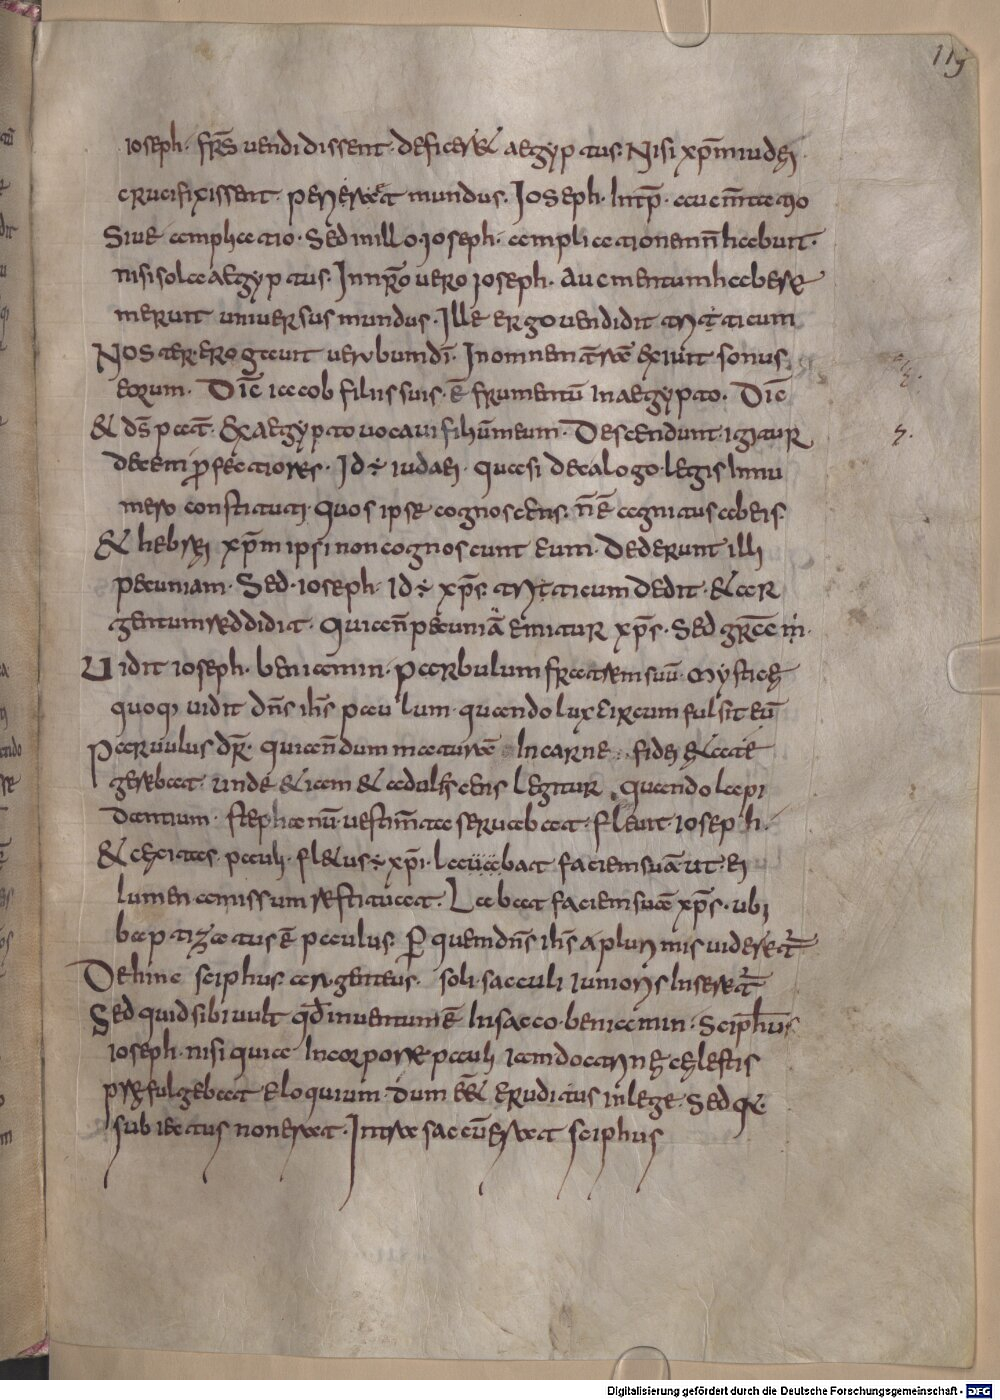 119
ioseph· frs̄ uendidissent· deficer& aegyptus· Nisi xp̄m iudęi
crucifixissent· periret mundus· Ioseph· intp̄· aucmtatio
Siue amplicatio· Sed in illo ioseph· amplicationem n̄ habuit·
nisi sola aegyptus· In nr̄o uero ioseph· aucmentum haber&
meruit uniuersus mundus· Ille ergo uendidit triticum
Noster· erogauit uerbum dī· In omnem terrā exiuit sonus
eorum· Dic̄ iacob filiis suis· ē frumentū in aegypto· Dic̄
& ds̄ pat̄· Ex aegypto uocaui filiū meum· Descendunt igitur
decem p̄fectiores· Id ÷ iudaei· quasi decalogo legis innu
mero constituti· quos ipse cognoscens· n̄ ē agnitus ab eis·
& hebręi xp̄m ipsi non cognoscunt eum· Dederunt illi
pecuniam· Sed· ioseph· Id ÷ xp̄s· triticum dedit· & ar
gentum reddidit· Quia n̄ pecuniā emitur xp̄s· Sed gratia
Uidit ioseph· beniamin· paruulum fratrem suū· Mysticę
quoq; uidit dn̄s ih̄s paulum· quando lux circumfulsit eū
paruulus dr̄· quia n̄dum maturae in carne fidei & aetate
gerebat· unde & iam & adulescens legitur quando lapi
dantium· stephanū· uestim̄ta seruabat· Fleuit· ioseph·
& cęcitas· pauli· fl&us ÷ xp̄i· lauabat faciem suā ut ei
lumen amissum restituat· Labat faciem suam xp̄s· ubi
baptizatus ē paulus· p̄ quem dn̄s ih̄s a plurimis uideret̄
Dehinc sciphus argenteus· soli· sacculi iunioris insereret̄
Sed quid sibi uult qd̄ inuentum ē In sacco· beniamin· Sciphus
ioseph· nisi quia In corpore pauli iam doctrinę cęlestis
prefulgebat eloquium· dum ēet eruditus in lege· Sed quia
subiectus non erat· Intra saccū erat sciphus
Digitalisierung gefördert durch die Deutsche Forschungsgemeinschaft - DFG